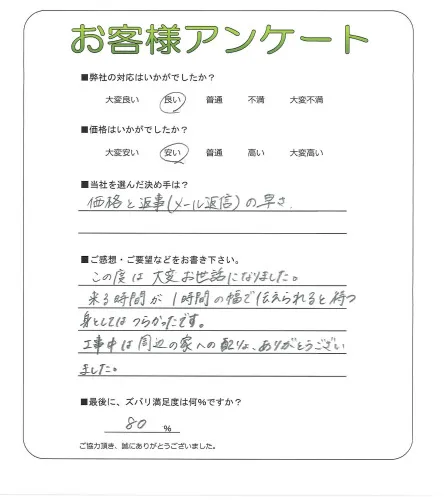 お客様アンケート
■弊社の対応はいかがでしたか?
大変良い 良い 普通 不満 大変不満
■価格はいかがでしたか?
大変安い 安い 普通 高い 大変高い
■当社を選んだ決め手は?
価格と返事(メール返信)の早さ.
■ご感想・ご要望などをお書き下さい。
この度は大変お世話になりました。
来る時間が1時間の幅で伝えられると待つ
身としてはつらかったです。
工事中は周辺の家への配りょ、ありがとうござい
ました。
■最後に、ズバリ満足度は何%ですか?
80 %
ご協力頂き、誠にありがとうございました。